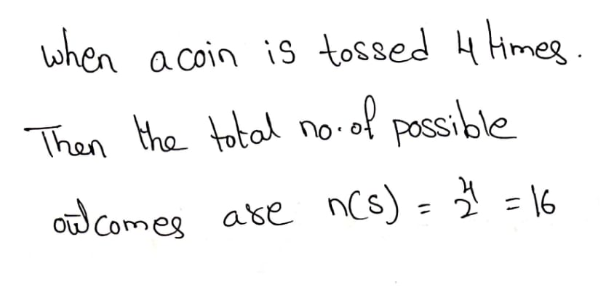 when a coin is tossed 4 times.
Then the total no. of possible
outcomes are n(s) = 2⁴ = 16